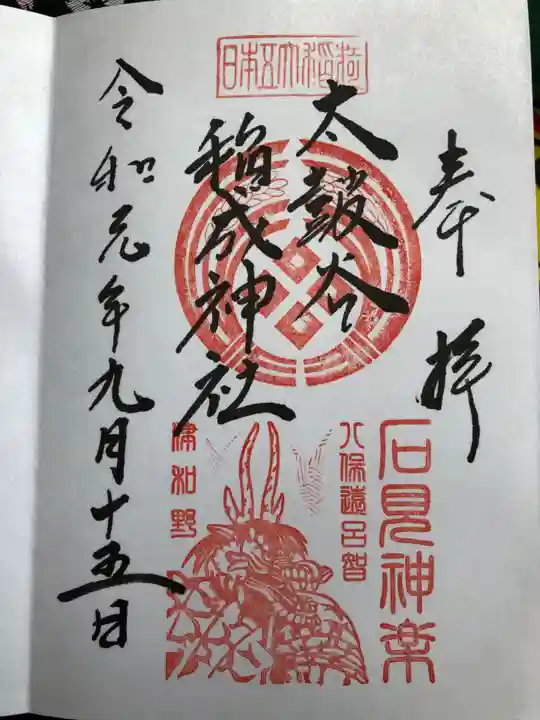 日本五大稲荷
奉拝
太皷谷
稲成神社
令和元年九月十五日
石見神楽
八保遠呂智
津和野